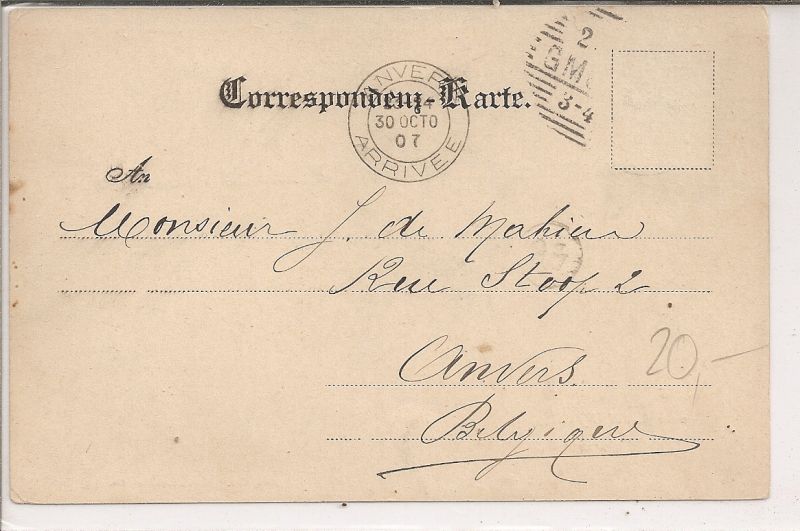 Correspondenz-Karte.
ANVERS
30 OCTO
07
ARRIVEE
2
3-4
An
Monsieur J. de Mahieu
Rue Stoop 2
Anvers
Belgique
20,-